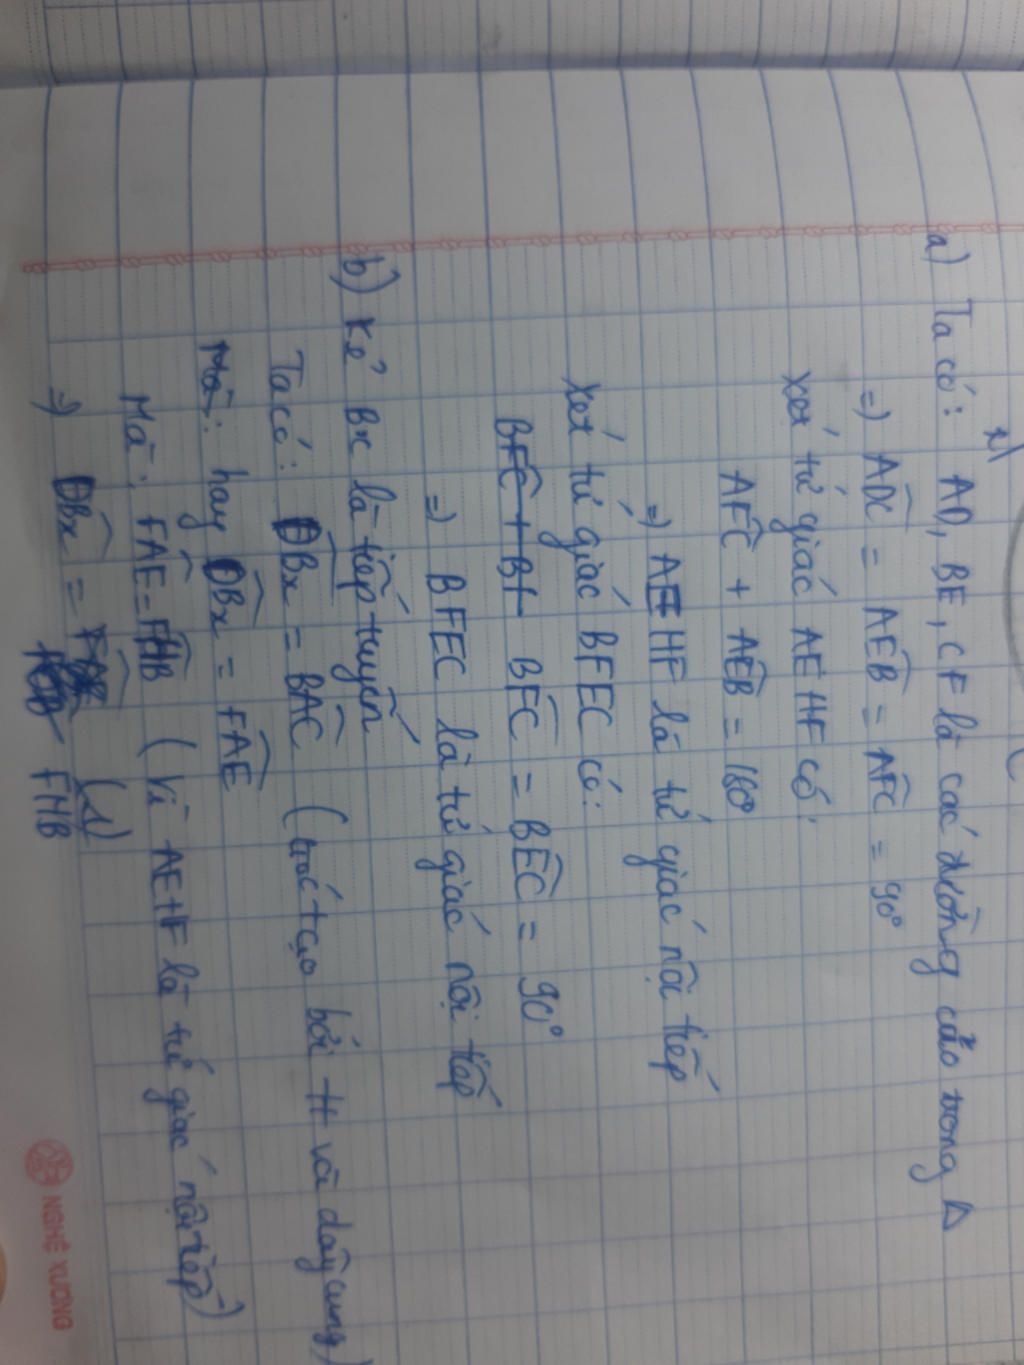 a) Ta có: AD, BE, CF là các đường cao trong Δ
=) ADC = AEB = AFC = 90°
Xét tứ giác AEHF có:
AFC + AEB = 180°
=) AEHF là tứ giác nội tiếp
Xét tứ giác BFEC có:
BFC + BF BFC = BEC = 90°
=) BFEC là tứ giác nội tiếp
b) Kẻ Bx là tiếp tuyến
Ta có: DBx = BAC (góc tạo bởi tt và dây cung)
Mà: hay DBx = FAE
Mà: FAE = FHB (Vì AEHF là tứ giác nội tiếp)
=) DBx = FHB (1)
NGHÊ XUÔNG